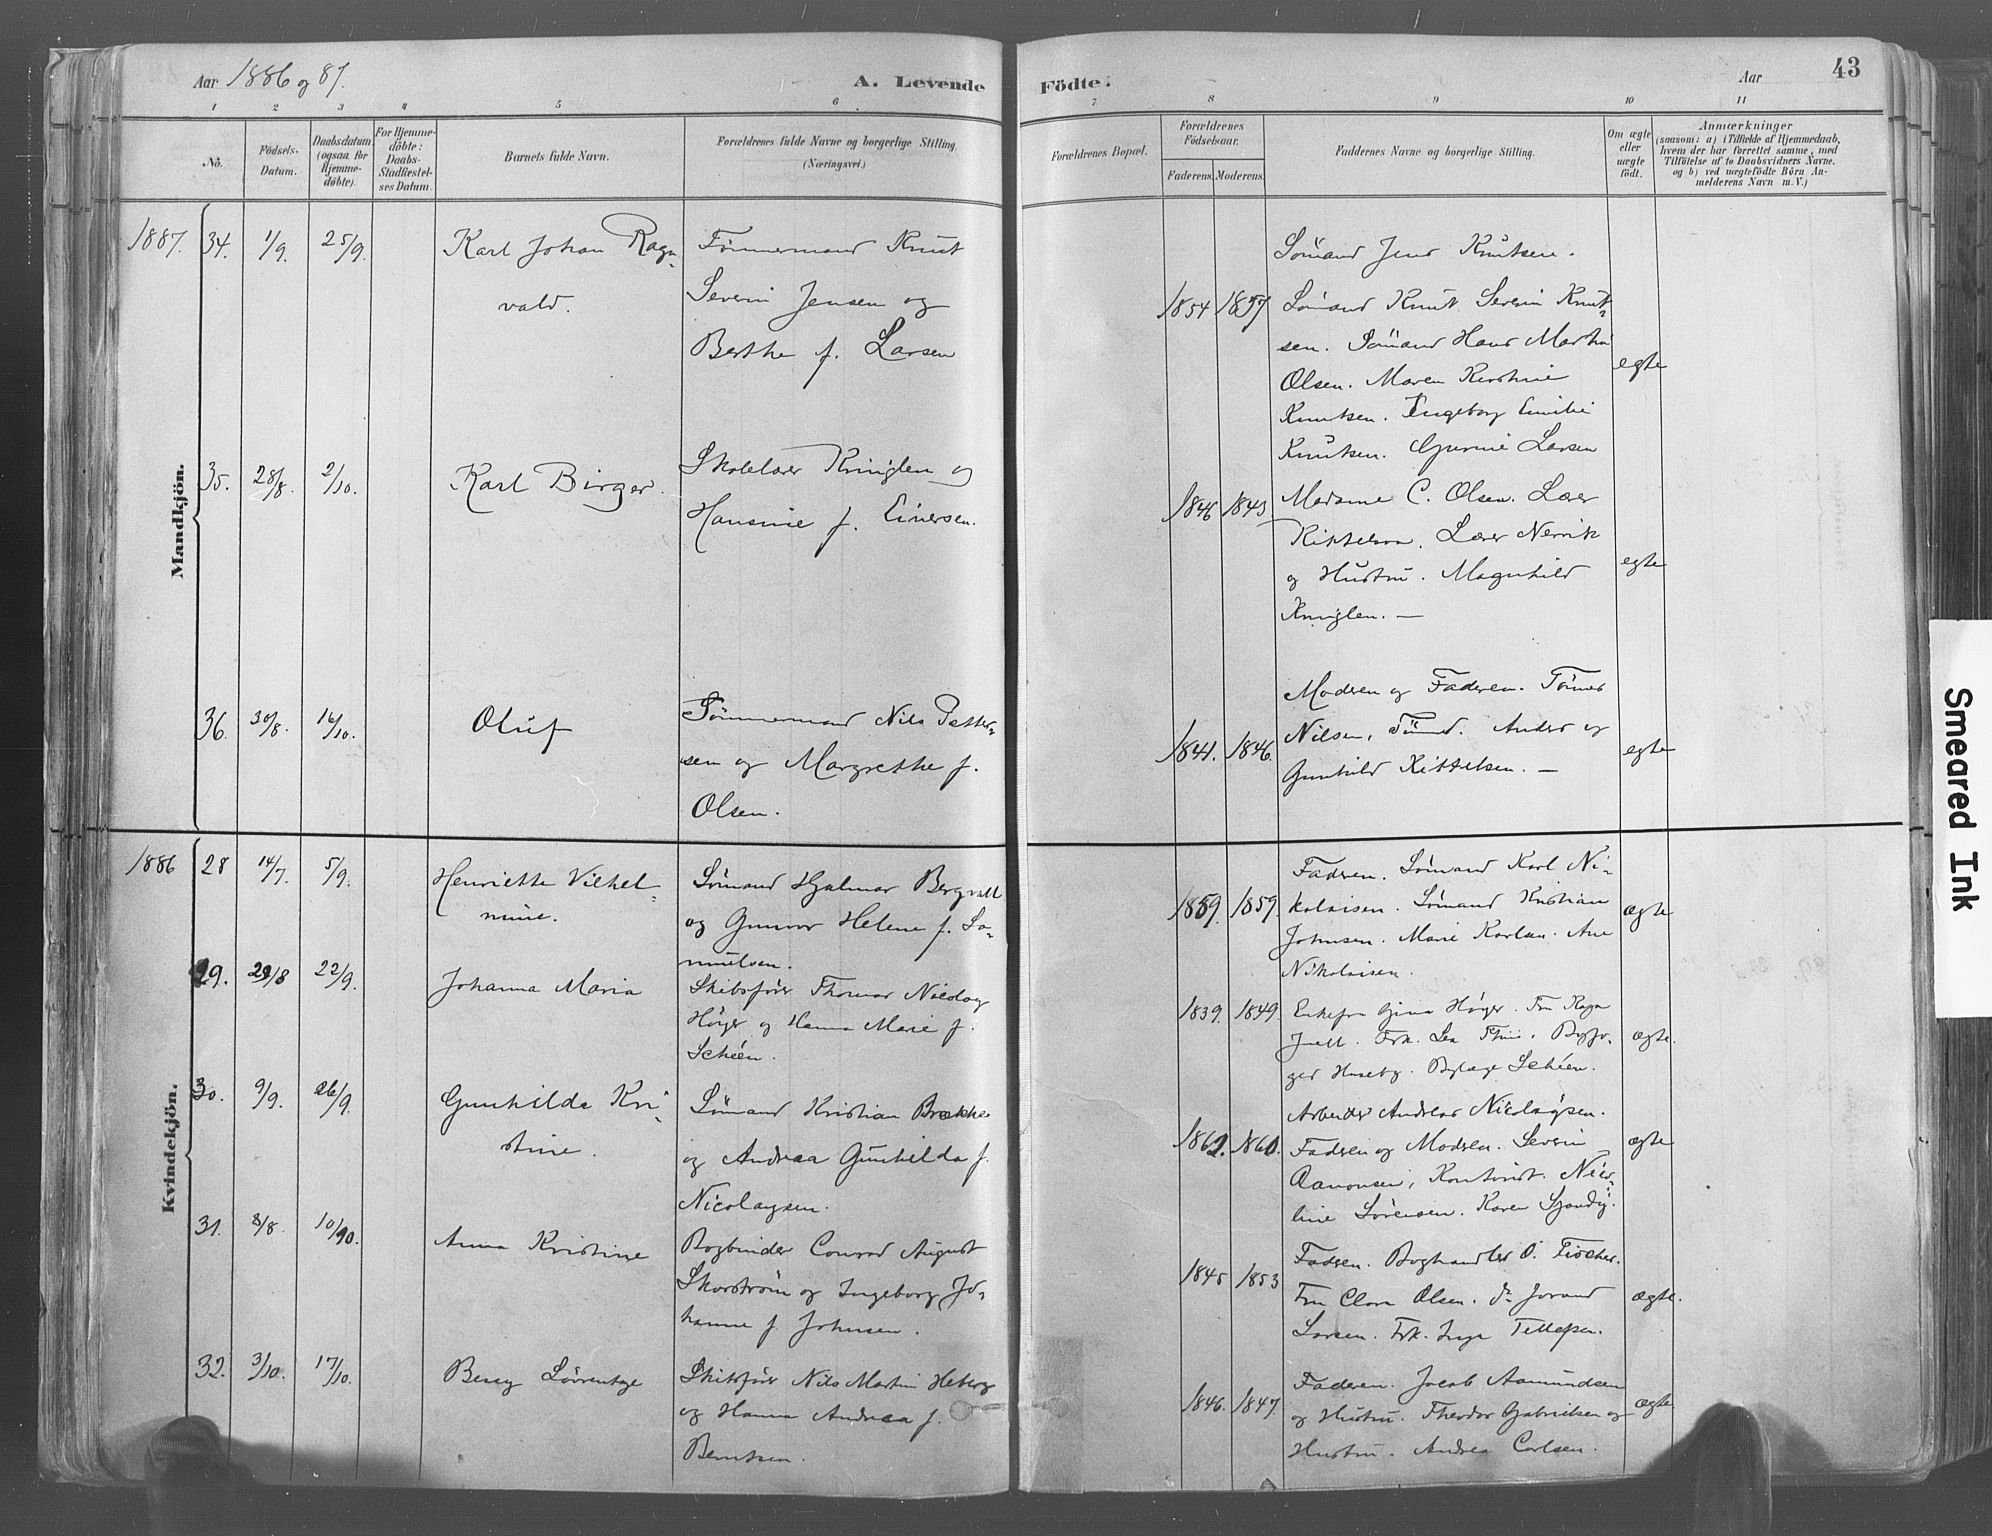 Aar 1886 og 87.
A. Levende
Födte.
Aar
43
1 2 3 4 5 6 7 8 9 10 11
No.
Födsels-
Datum.
Daabsdatum
(ogsaa for
Hjemme-
döbte).
For Hjemme-
döbte:
Daabs-
Stadfæstel-
ses Datum.
Barnets fulde Navn.
Forældrenes fulde Navne og borgerlige Stilling.
(Næringsvei.)
Forældrenes Bopæl.
Forældrenes
Födselsaar.
Faderens. Moderens.
Faddernes Navne og borgerlige Stilling.
Om ægte
eller
uægte
födt.
Anmærkninger
(saasom: a) i Tilfælde af Hjemmedaab,
hvem der har forrettet samme, med
Tilföielse af to Daabsvidners Navne.
og b) ved uægtefödte Börn An-
melderens Navn m. V.)
Mandkjön.
1887. 34. 1/9. 25/9.
Karl Johan Ragn-
vald.
Tømmermand Knut
Severin Jensen og
Berthe f. Larsen
1854 1857
Sömand Jens Knutsen.
Sömand Knut Severin Knut-
sen. Sömand Hans Martin
Olsen. Maren Kirstine
Knutsen. Ingeborg Emilie
Knutsen. Gurine Larsen
egte
35. 28/8. 2/10.
Karl Birger.
Skolelærer Kringlen og
Hansine f. Einersen.
1846 1843.
Madame C. Olsen. Lærer
Kittelsen. Lærer Nervik
og Hustru. Magnhild
Kringlen. —
egte
36. 30/8. 16/10.
Oluf
Tömmermand Nils Petter-
sen og Margrethe f.
Olsen.
1841. 1846.
Moderen og Faderen. Tömer
Nilsen, Tömd. Anders og
Gunhild Kittelsen. —
egte
Kvindekjön.
1886 28 14/7. 5/9.
Henriette Vilhel-
mine.
Sömand Hjalmar Bergvall
og Gunvor Helene f. Sa-
muelsen.
1859. 1859.
Faderen. Sömand Karl Ni-
kolaisen. Sömand Kristian
Johnsen. Marie Karlsen. Ane
Nikolaisen.
ægte
29. 29/8 22/9.
Johanna Maria
Skibsförer Thomas Nicolay
Höyer og Hanna Marie f.
Schéen.
1839. 1849.
Enkefru Gina Höyer. Fru Ragna
Juell. Frk. Lea
Huseby. Schéen.
ægte.
30. 9/9. 26/9.
Gunhilde Kri-
stine.
Sömand Kristian Brekke
og Andrea Gunhilda f.
Nicolaysen.
1862. 1860.
Arbeider Andreas Nicolaysen.
Faderen og Moderen. Severin
Aanonsen, Kontorist. Nico-
line Sörensen. Karen
ægte
31. 8/8. 10/10.
Anna Kristine
Bogbinder Conrad August
Skarström og Ingeborg Jo-
hanne f. Johnsen.
1845 1853
Faderen. Boghandler O. Fischer.
Fru Clara Olsen. do Jorand
Larsen. Frk. Inga Tellefsen.
ægte.
32. 3/10. 17/10.
Bessy Lövrentze
Skibsförer Nils Martin Heberg
og Hanna Andrea f.
Berntsen.
1846. 1847.
Faderen. Jacob Aamundsen
og Hustru. Theodor Gabrielsen og
Hustru. Andrea Carlsen.
ægte
Smeared Ink